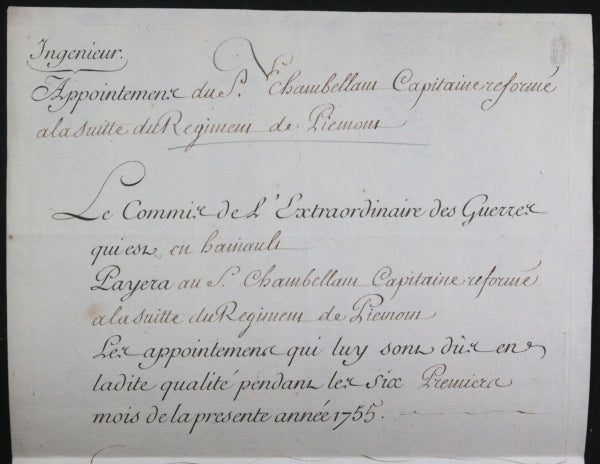 Ingenieur.
Appointemens du S. Chambellam Capitaine reformé
ala suitte du Regiment de Piemont
Le Commis de L'Extraordinaire des Guerres
qui est en hainault
Payera au S. Chambellam Capitaine reformé
ala suitte du Regiment de Piemont
Les appointemens qui luy sont dûs en
ladite qualité pendant les six Premiers
mois de la presente année 1755.